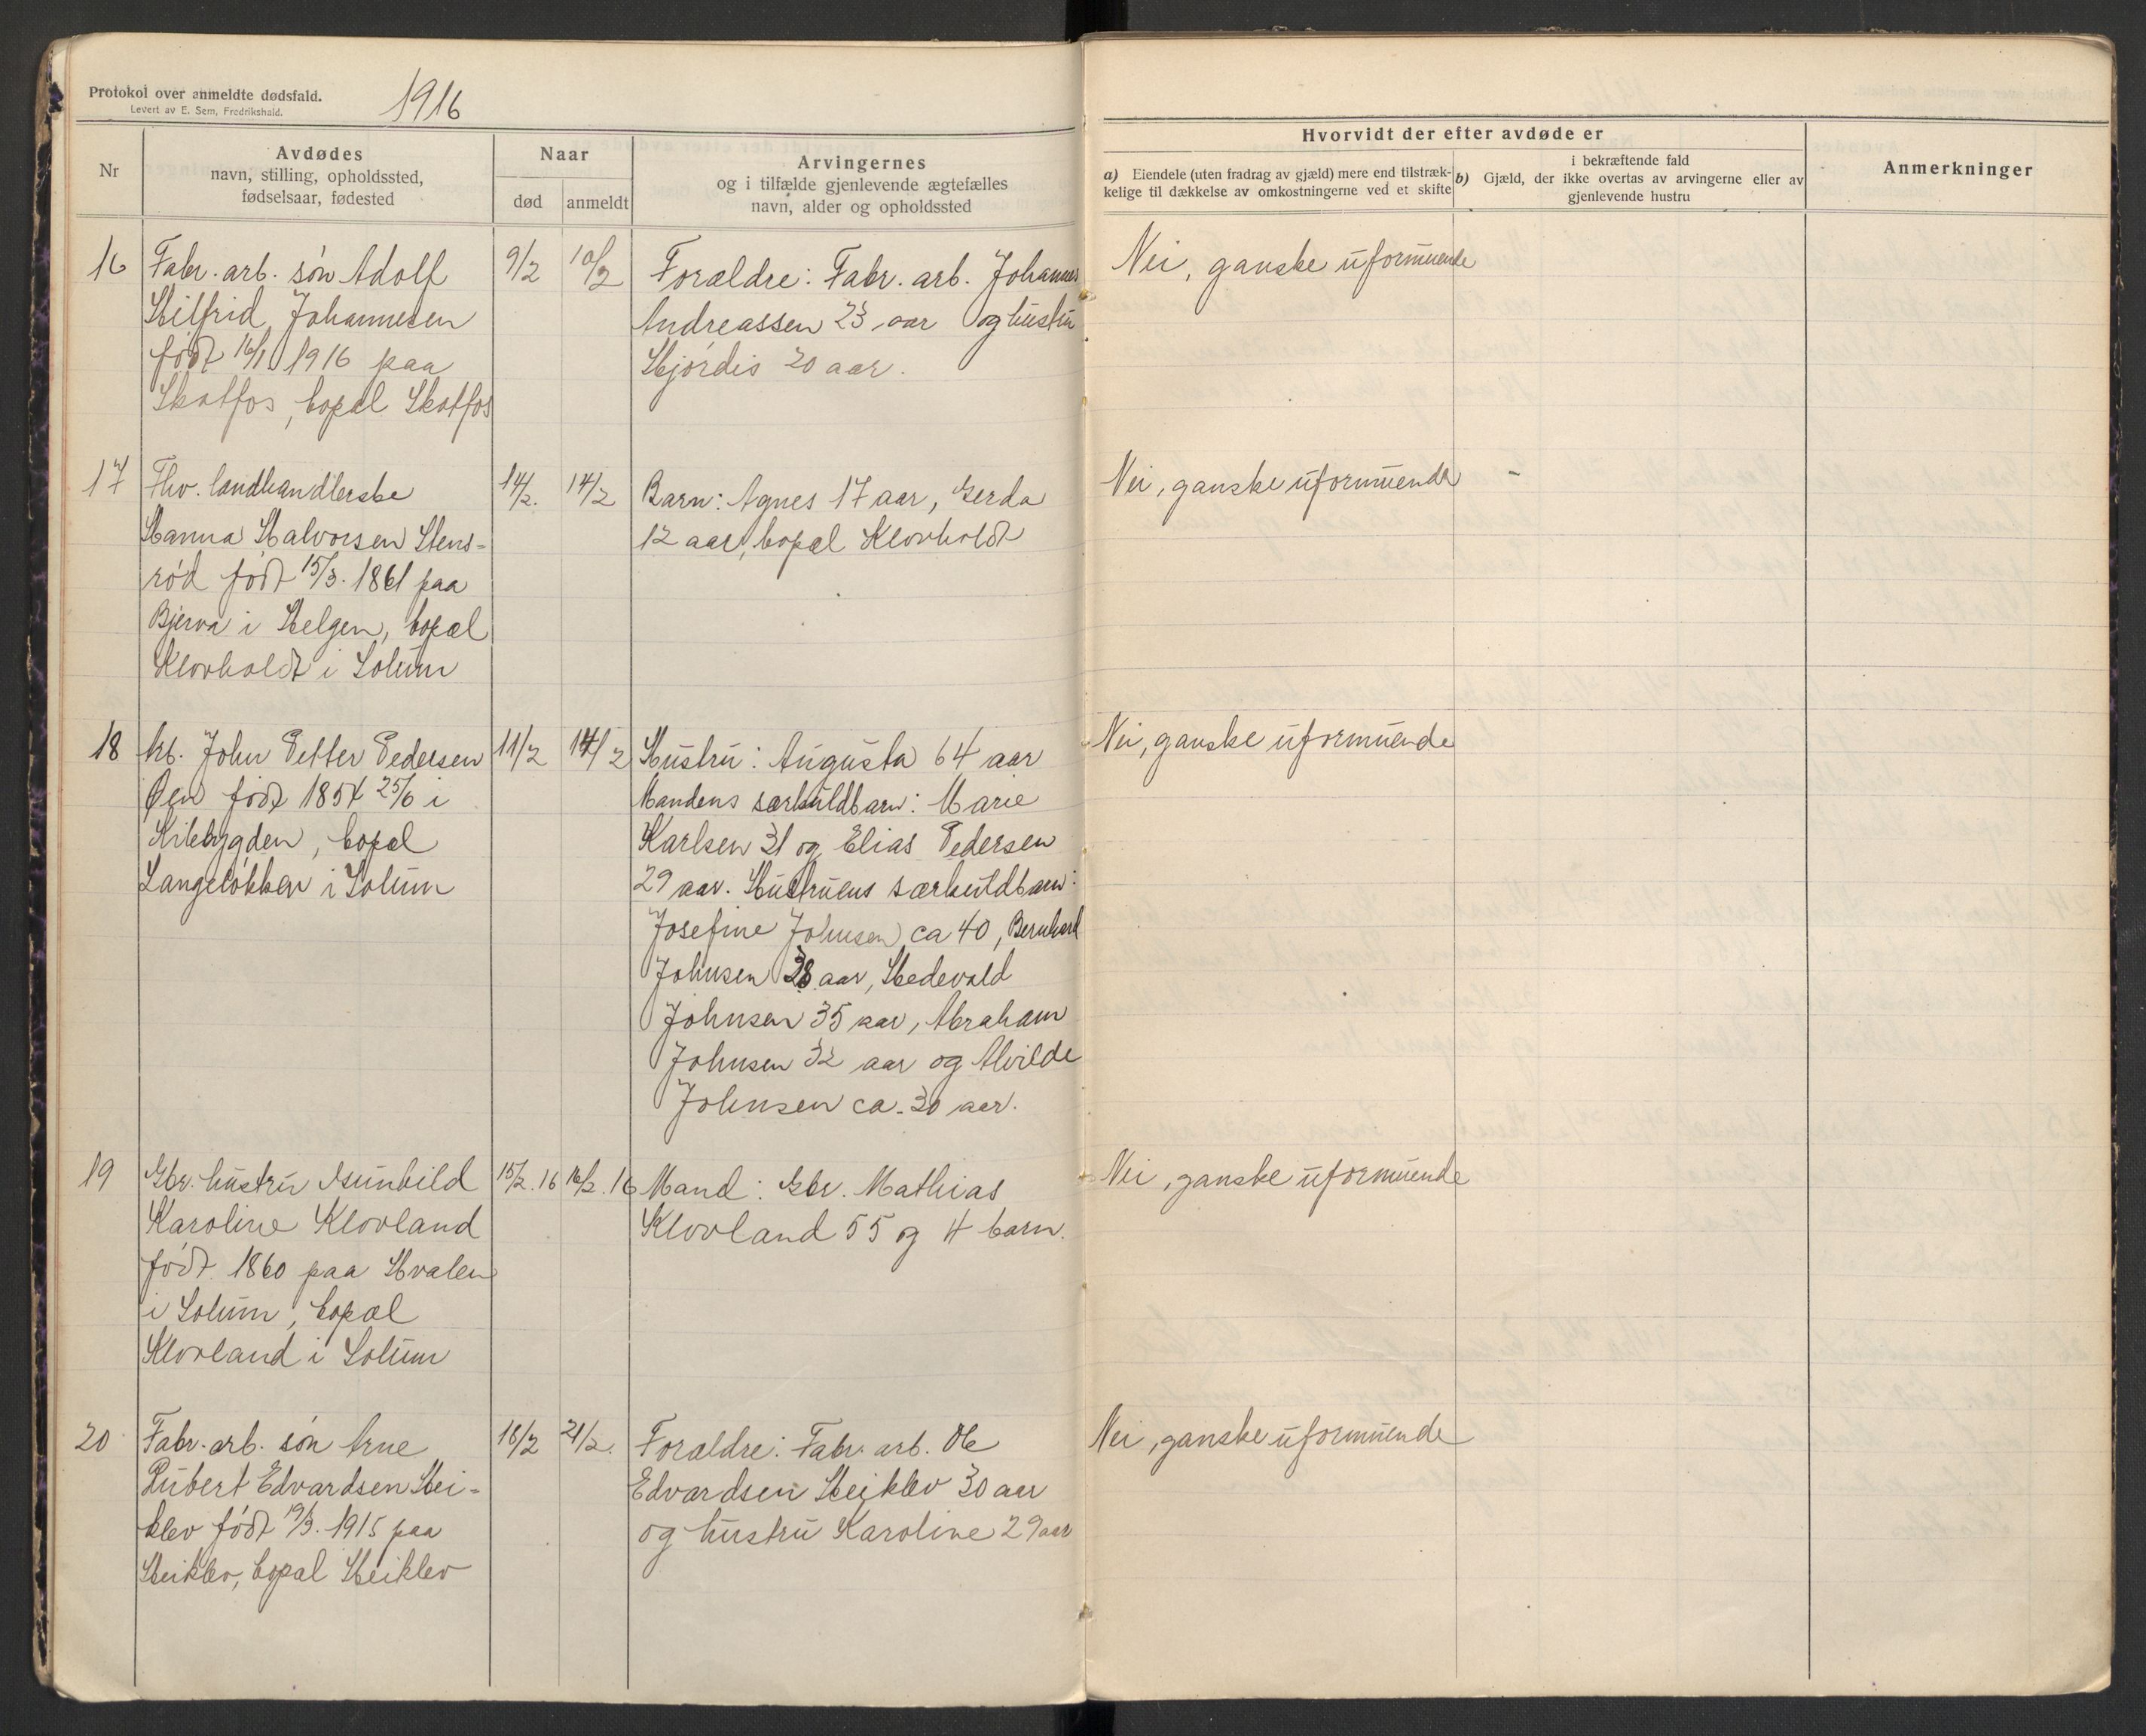 Protokol over anmeldte dødsfald.
Levert av E. Sem, Fredrikshald.
1916
Nr
Avdødes
navn, stilling, opholdssted,
fødselsaar, fødested
Naar
død
anmeldt
Arvingernes
og i tilfælde gjenlevende ægtefælles
navn, alder og opholdssted
Hvorvidt der efter avdøde er
a) Eiendele (uten fradrag av gjæld) mere end tilstræk-
kelige til dækkelse av omkostningerne ved et skifte
b) i bekræftende fald
Gjæld, der ikke overtas av arvingerne eller av
gjenlevende hustru
Anmerkninger
16
Fabr. arb. søn Adolf
Hilfrid Johannesen
født 16/1 1916 paa
Skotfos, bopæl Skotfos
9/2
10/2
Forældre: Fabr. arb. Johannes
Andreassen 23 aar og hustru
Hjørdis 20 aar.
Nei, ganske uformuende
17
Fhv. landhandlerske
Hanna Halvorsen Stens-
rød født 15/3. 1861 paa
Bjerva i Helgen, bopæl
Klovholdt i Solum
14/2.
14/2
Barn: Agnes 17 aar, Gerda
12 aar, bopæl Klovholdt
Nei, ganske uformuende -
18
Arb. John Petter Pedersen
Øen født 1854 25/6 i
Kilebygden, bopæl
Langeløkken i Solum
11/2
14/2
Hustru: Augusta 64 aar
Mandens særkuldbarn: Marie
Karlsen 31 og Elias Pedersen
29 aar. Hustruens særkuldbarn:
Josefine Johnsen ca 40, Bernhard
Johnsen 38 aar, Hedevald
Johnsen 35 aar, Abraham
Johnsen 32 aar og Alvilde
Johnsen ca. 30 aar.
Nei, ganske uformuende
19
Gbr. hustru Gunhild
Karoline Klovland
født 1860 paa Hvalen
i Solum, bopæl
Klovland i Solum
15/2. 16
16/2. 16
Mand: Gbr. Mathias
Klovland 55 og 4 barn.
Nei, ganske uformuende
20
Fabr. arb. søn Arne
Hubert Edvardsen Hei-
klev født 19/3. 1915 paa
Heiklev, bopæl Heiklev
18/2
21/2.
Forældre: Fabr. arb. Ole
Edvardsen Heiklev 30 aar
og hustru Karoline 29 aar
Nei, ganske uformuende